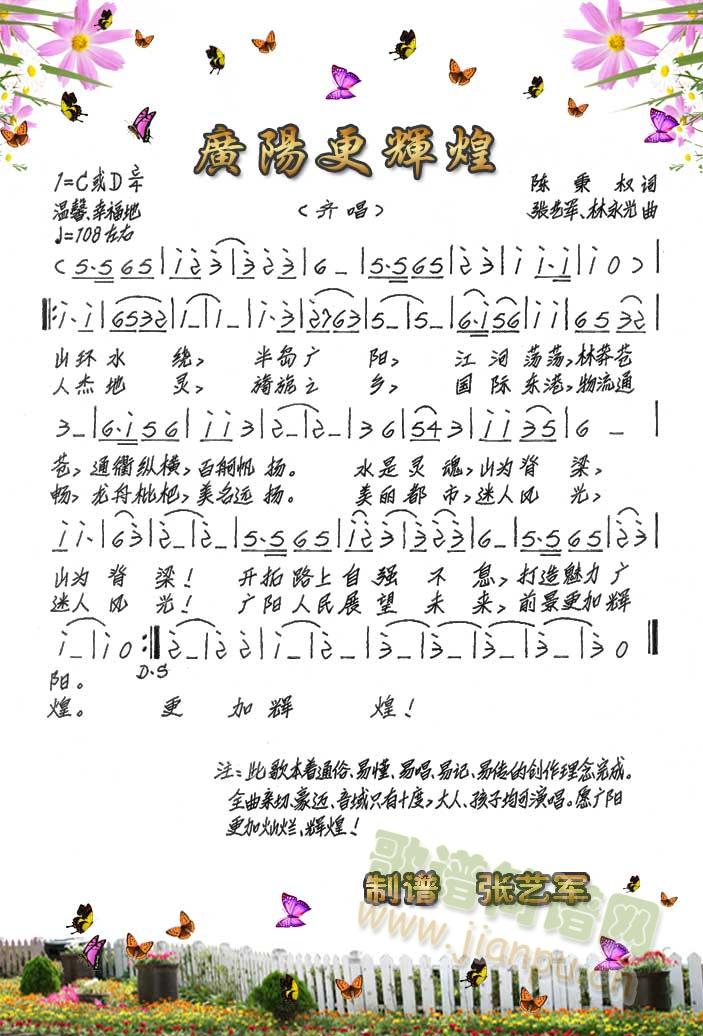 廣陽更輝煌
1=C或D 2/4
陈秉权词
温馨、幸福地
（齐唱）
张艺军、林永光曲
♩=108左右
（5·5 65|i 2 3|3 2 3|6 –|5·5 65|2 3|i i·i|i 0）|
‖:i·i|6532|i –|i –|i·3|2763|5 –|5 –|6·i 56|i i|65 32|
山环水绕，半岛广阳，江河荡荡，林莽苍
人杰地灵，旖旎之乡，国际东港，物流通
3 –|6·i 56|i i 3|2 –|2 –|3 6|5 4 3|i i 35|6 –|
苍，通衢纵横，百舸帆扬。水是灵魂，山为脊梁，
畅，龙舟枇杷，美名远扬。美丽都市，迷人风光，
i i·|6 3|2 –|2 –|5·5 65|i 2 3|3 2 3|6 –|5·5 65|2 3|
山为脊梁！开拓路上自强不息，打造魅力广
迷人风光！广阳人民展望未来，前景更加辉
i –|i 0:‖2 –|2 2|i –|i –|3 –|3 –|3 –|3 0‖
D.S
阳。
煌。更加辉煌！
注：此歌本着通俗、易懂、易唱、易记、易传的创作理念完成。
全曲亲切、豪迈、音域只有十度，大人、孩子均可演唱。愿广阳
更加灿烂、辉煌！
歌谱简谱网
制谱 张艺军
www.jianpu.cn